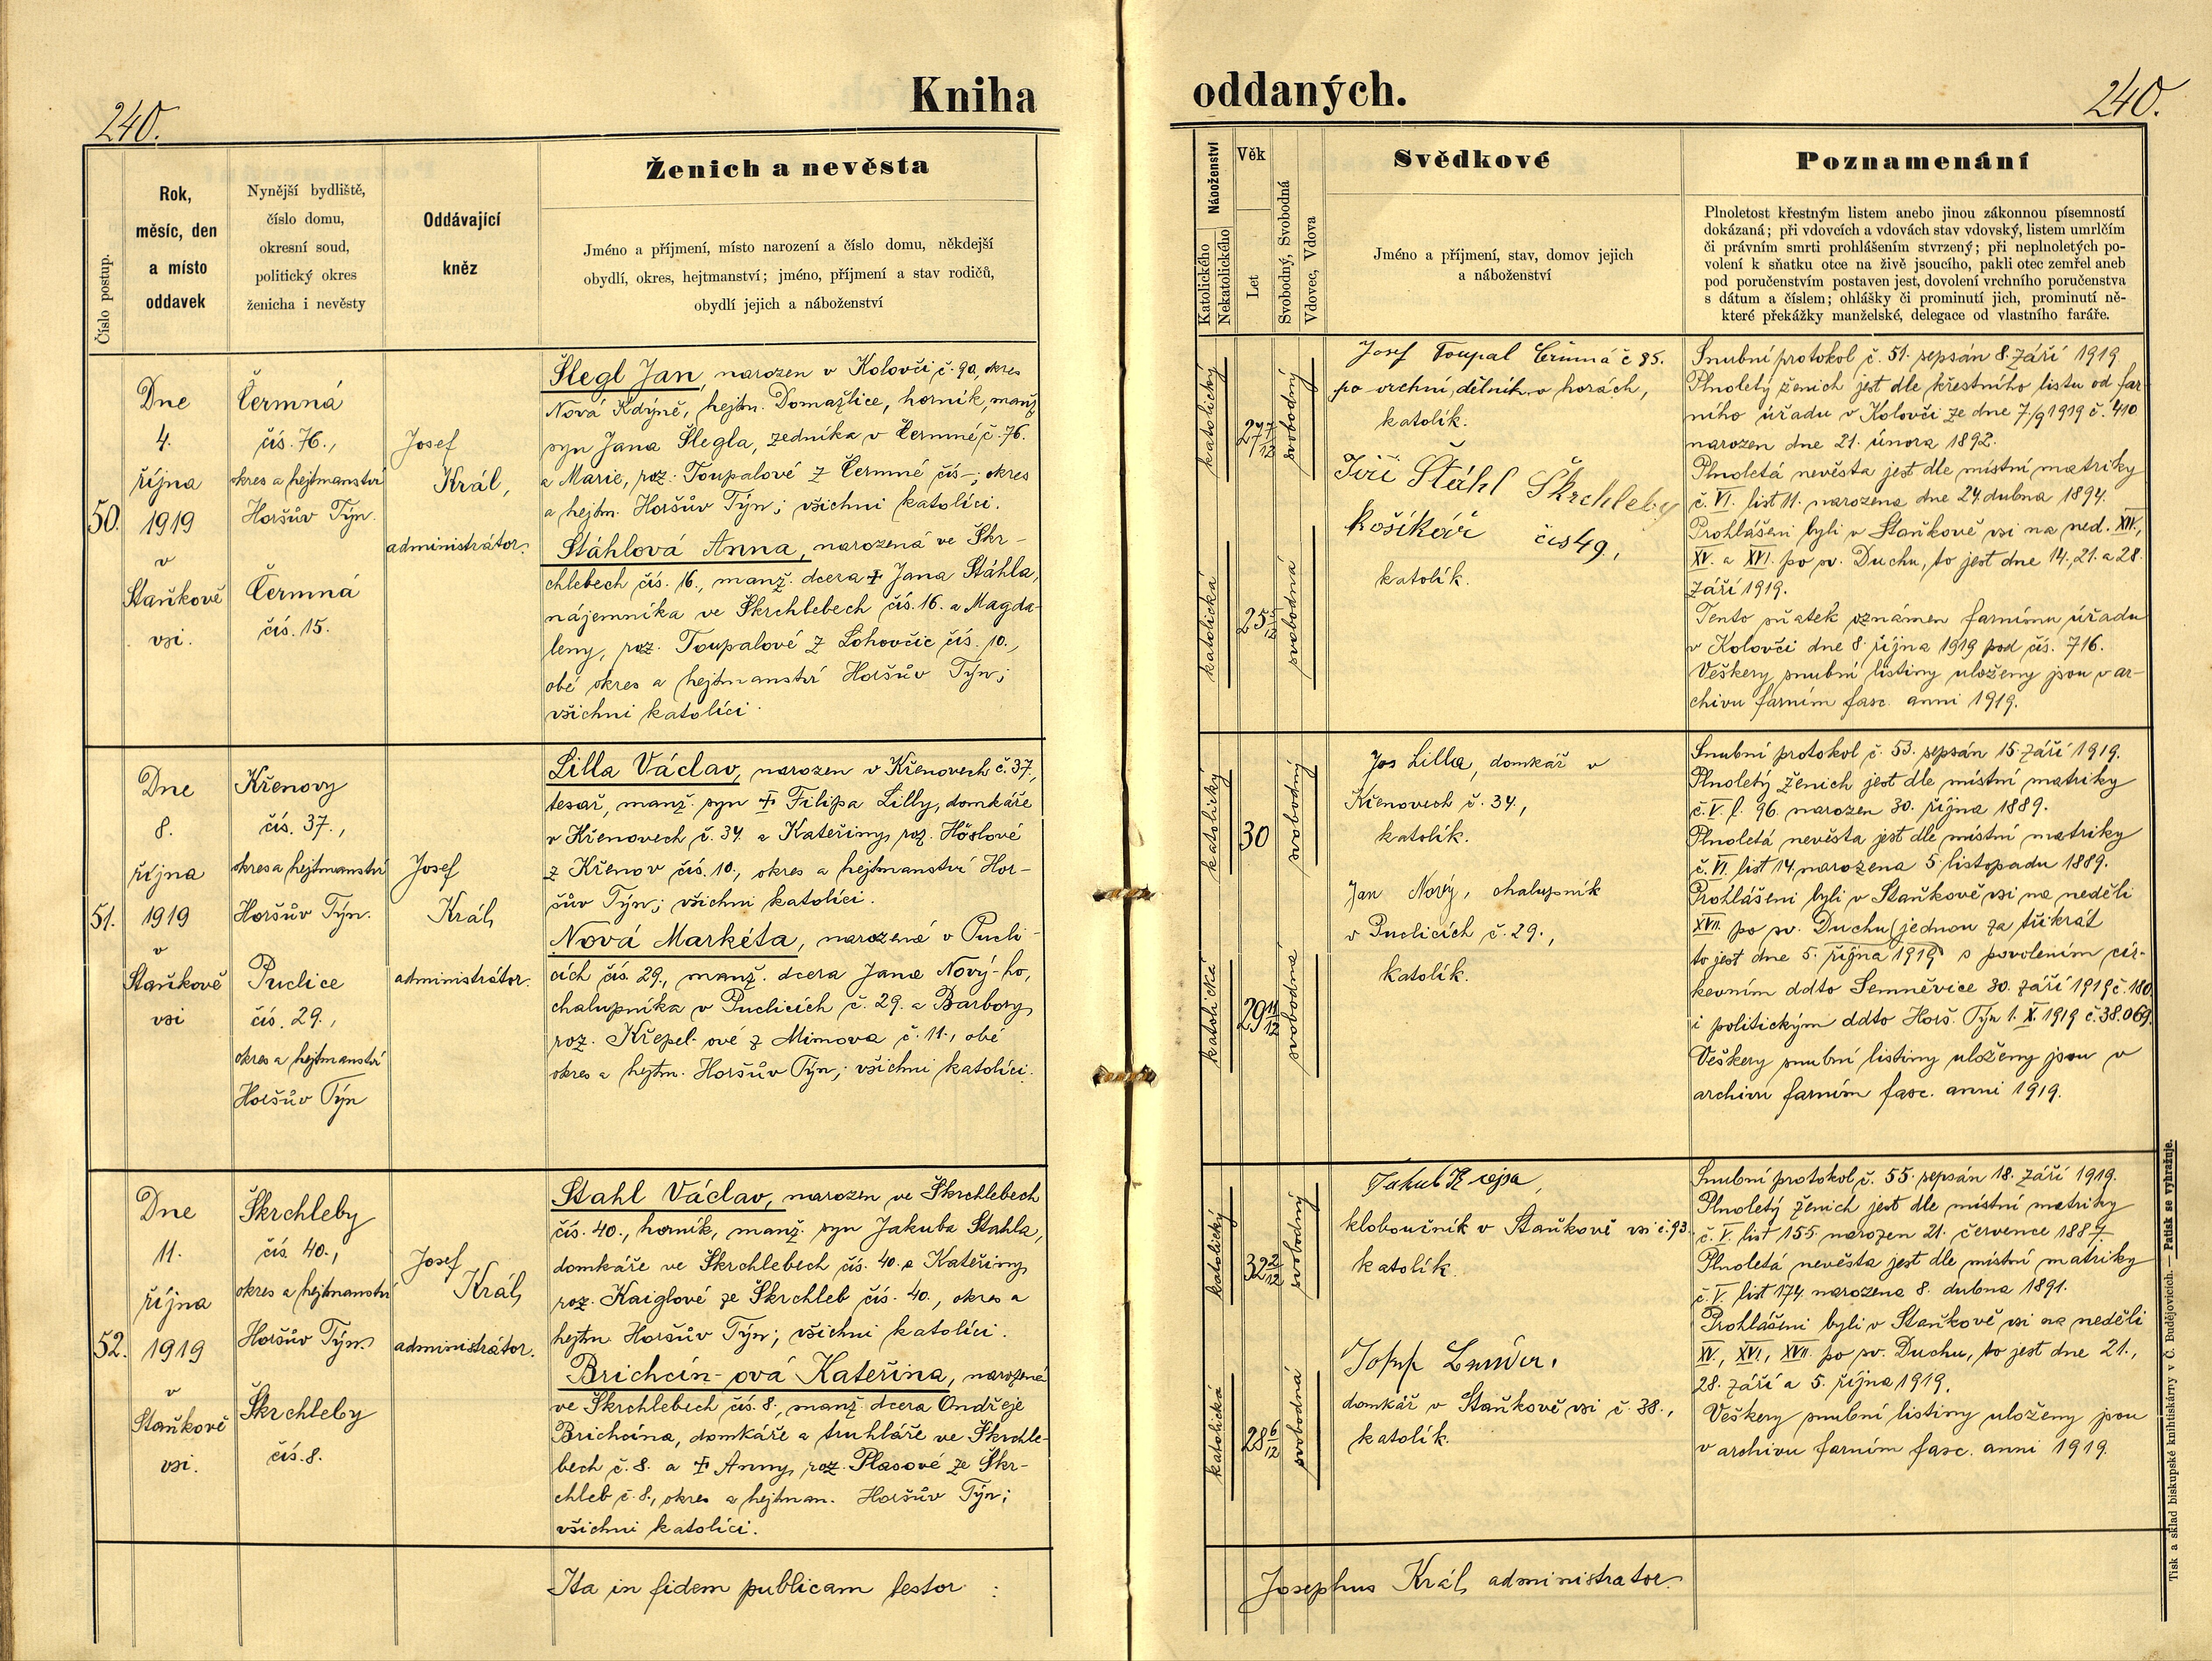 240.
Kniha
oddaných.
240.
Číslo postup.
Rok,
měsíc, den
a místo
oddavek
Nynější bydliště,
číslo domu,
okresní soud,
politický okres
ženicha i nevěsty
Oddávající
kněz
Ženich a nevěsta
Jméno a příjmení, místo narození a číslo domu, někdejší
obydlí, okres, hejtmanství; jméno, příjmení a stav rodičů,
obydlí jejich a náboženství
Náboženství
Katolického
Nekatolického
Věk
Let
Svobodný, Svobodná
Vdovec, Vdova
Svědkové
Jméno a příjmení, stav, domov jejich
a náboženství
Poznamenání
Plnoletost křestným listem anebo jinou zákonnou písemností
dokázaná; při vdovcích a vdovách stav vdovský, listem umrlčím
či právním smrti prohlášením stvrzený; při neplnoletých po-
volení k sňatku otce na živě jsoucího, pakli otec zemřel aneb
pod poručenstvím postaven jest, dovolení vrchního poručenstva
s dátum a číslem; ohlášky či prominutí jich, prominutí ně-
které překážky manželské, delegace od vlastního faráře.
50.
Dne
4.
října
1919
v
Staňkově
vsi.
Čermná
čís. 76.,
okres a hejtmanství
Horšův Týn.
Čermná
čís. 15.
Josef
Král,
administrátor.
Šlegl Jan, narozen v Kolovči č. 90, okres
Nová Kdýně, hejtm. Domažlice, horník, manž.
syn Jana Šlegla, zedníka v Čermné č. 76.
a Marie, roz. Toupalové z Čermné čís –; okres
a hejtm. Horšův Týn; všichni katolíci.
Stáhlová Anna, narozená ve Skr-
chlebech čís. 16., manž. dcera ✝ Jana Stáhla,
nájemníka ve Škrchlebech čís. 16. a Magda-
leny, roz. Toupalové z Lohovčic čís. 10.,
obé okres a hejtmanství Horšův Týn;
všichni katolíci.
katolický
27 7/12
svobodný
katolická
25
svobodná
Josef Toupal Čermná č 85.
po vrchní dělník v horách,
katolík.
Jiří Stáhl Škrchleby
košíkář čís 49,
katolík.
Snubní protokol č. 51. sepsán 8. září 1919
Plnoletý ženich jest dle křestního listu od far-
ního úřadu v Kolovči ze dne 7/9 1919 č. 410
narozen dne 21. února 1892.
Plnoletá nevěsta jest dle místní matriky
č. VI. list 11. narozena dne 24. dubna 1894.
Prohlášeni byli v Staňkově vsi na ned. XIV.,
XV. a XVI. po sv. Duchu, to jest dne 14., 21. a 28.
září 1919.
Tento sňatek oznámen farnímu úřadu
v Kolovči dne 8. října 1919 pod čís. 716.
Veškery snubní listiny uloženy jsou v ar-
chivu farním fasc. anni 1919.
51.
Dne
8.
října
1919
v
Staňkově
vsi
Křenovy
čís. 37.,
okres a hejtmanství
Horšův Týn.
Puclice
čís. 29.,
okres a hejtmanství
Horšův Týn
Josef
Král,
administrátor.
Lilla Václav, narozen v Křenovech č. 37.,
tesař, manž. syn ✝ Filipa Lilly, domkáře
v Křenovech č. 34. a Kateřiny, roz. Höslové
z Křenov čís. 10., okres a hejtmanství Hor-
šův Týn; všichni katolíci.
Nová Markéta, narozená v Pucli-
cích čís. 29., manž. dcera Jana Nový-ho,
chalupníka v Puclicích č. 29. a Barbory,
roz. Křepel-ové z Mimova č. 11., obé
okres a hejtm. Horšův Týn; všichni katolíci.
katolický
30
svobodný
katolická
29 11/12
svobodná
Jos Lilla, domkář v
Křenovech č. 34.,
katolík.
Jan Nový, chalupník
v Puclicích č. 29.,
katolík.
Snubní protokol č. 53. sepsán 15. září 1919.
Plnoletý ženich jest dle místní matriky
č. V. f. 96. narozen 30. října 1889.
Plnoletá nevěsta jest dle místní matriky
č. VI. list 14. narozena 5. listopadu 1889.
Prohlášeni byli v Staňkově vsi na neděli
XVII. po sv. Duchu (jednou za třikrát
to jest dne 5. října 1919) s povolením cír-
kevním ddto Semněvice 30. září 1919 č. 180.
i politickým ddto Horš. Týn 1. X. 1919 č. 38.069.
Veškery snubní listiny uloženy jsou v
archivu farním fasc. anni 1919.
52.
Dne
11.
října
1919
v
Staňkově
vsi.
Škrchleby
čís. 40.,
okres a hejtmanství
Horšův Týn.
Škrchleby
čís. 8.
Josef
Král,
administrátor.
Stahl Václav, narozen ve Škrchlebech
čís. 40., horník, manž. syn Jakuba Stahla,
domkáře ve Škrchlebech čís. 40. a Kateřiny,
roz. Kaiglové ze Škrchleb čís. 40., okres a
hejtm. Horšův Týn; všichni katolíci.
Brichcín-ová Kateřina, narozená
ve Škrchlebech čís. 8., manž. dcera Ondřeje
Brichcína, domkáře a truhláře ve Škrchle-
bech č. 8. a ✝ Anny, roz. Plasové ze Škr-
chleb č. 8., okres a hejtman. Horšův Týn;
všichni katolíci.
katolický
32 2/12
svobodný
katolická
28 6/12
svobodná
Jakub
kloboučník v Staňkově vsi č. 93.
katolík.
Josef
domkář v Staňkově vsi č. 38.,
katolík.
Snubní protokol č. 55. sepsán 18. září 1919.
Plnoletý ženich jest dle místní matriky
č. V. list 155. narozen 21. července 1887
Plnoletá nevěsta jest dle místní matriky
č. V. list 174. narozena 8. dubna 1891.
Prohlášeni byli v Staňkově vsi na neděli
XV., XVI., XVII. po sv. Duchu, to jest dne 21.,
28. září a 5. října 1919.
Veškery snubní listiny uloženy jsou
v archivu farním fasc. anni 1919.
Ita in fidem publicam testor :
Josephus Král, administrator.
Tisk a sklad biskupské knihtiskárny v Č. Budějovicích. — Patisk se vyhražuje.